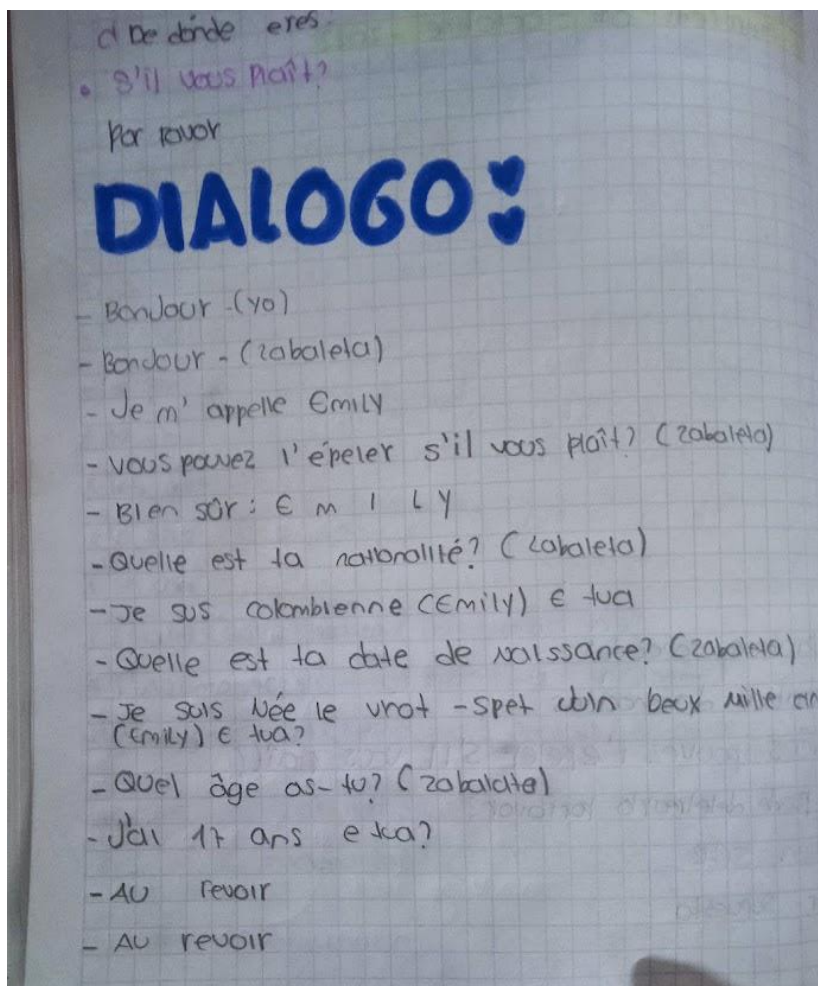 d De dónde eres
• S'il vous Plaît?
Por favor
DIALOGO:
- BonJour -(yo)
- BonJour - (zabaleta)
- Je m' appelle Emily
- vous pouvez l'épeler s'il vous plaît? (zabaleta)
- Bien sûr: E m I L Y
- Quelle est ta nationalité? (zabaleta)
- Je sus colombienne (Emily) E tua
- Quelle est ta date de naissance? (zabaleta)
- Je suis Née le vnot - spet beux mille
(Emily) E tua?
- Quel âge as-tu? (zabalate)
- J'ai 17 ans e tua?
- AU revoir
- AU revoir